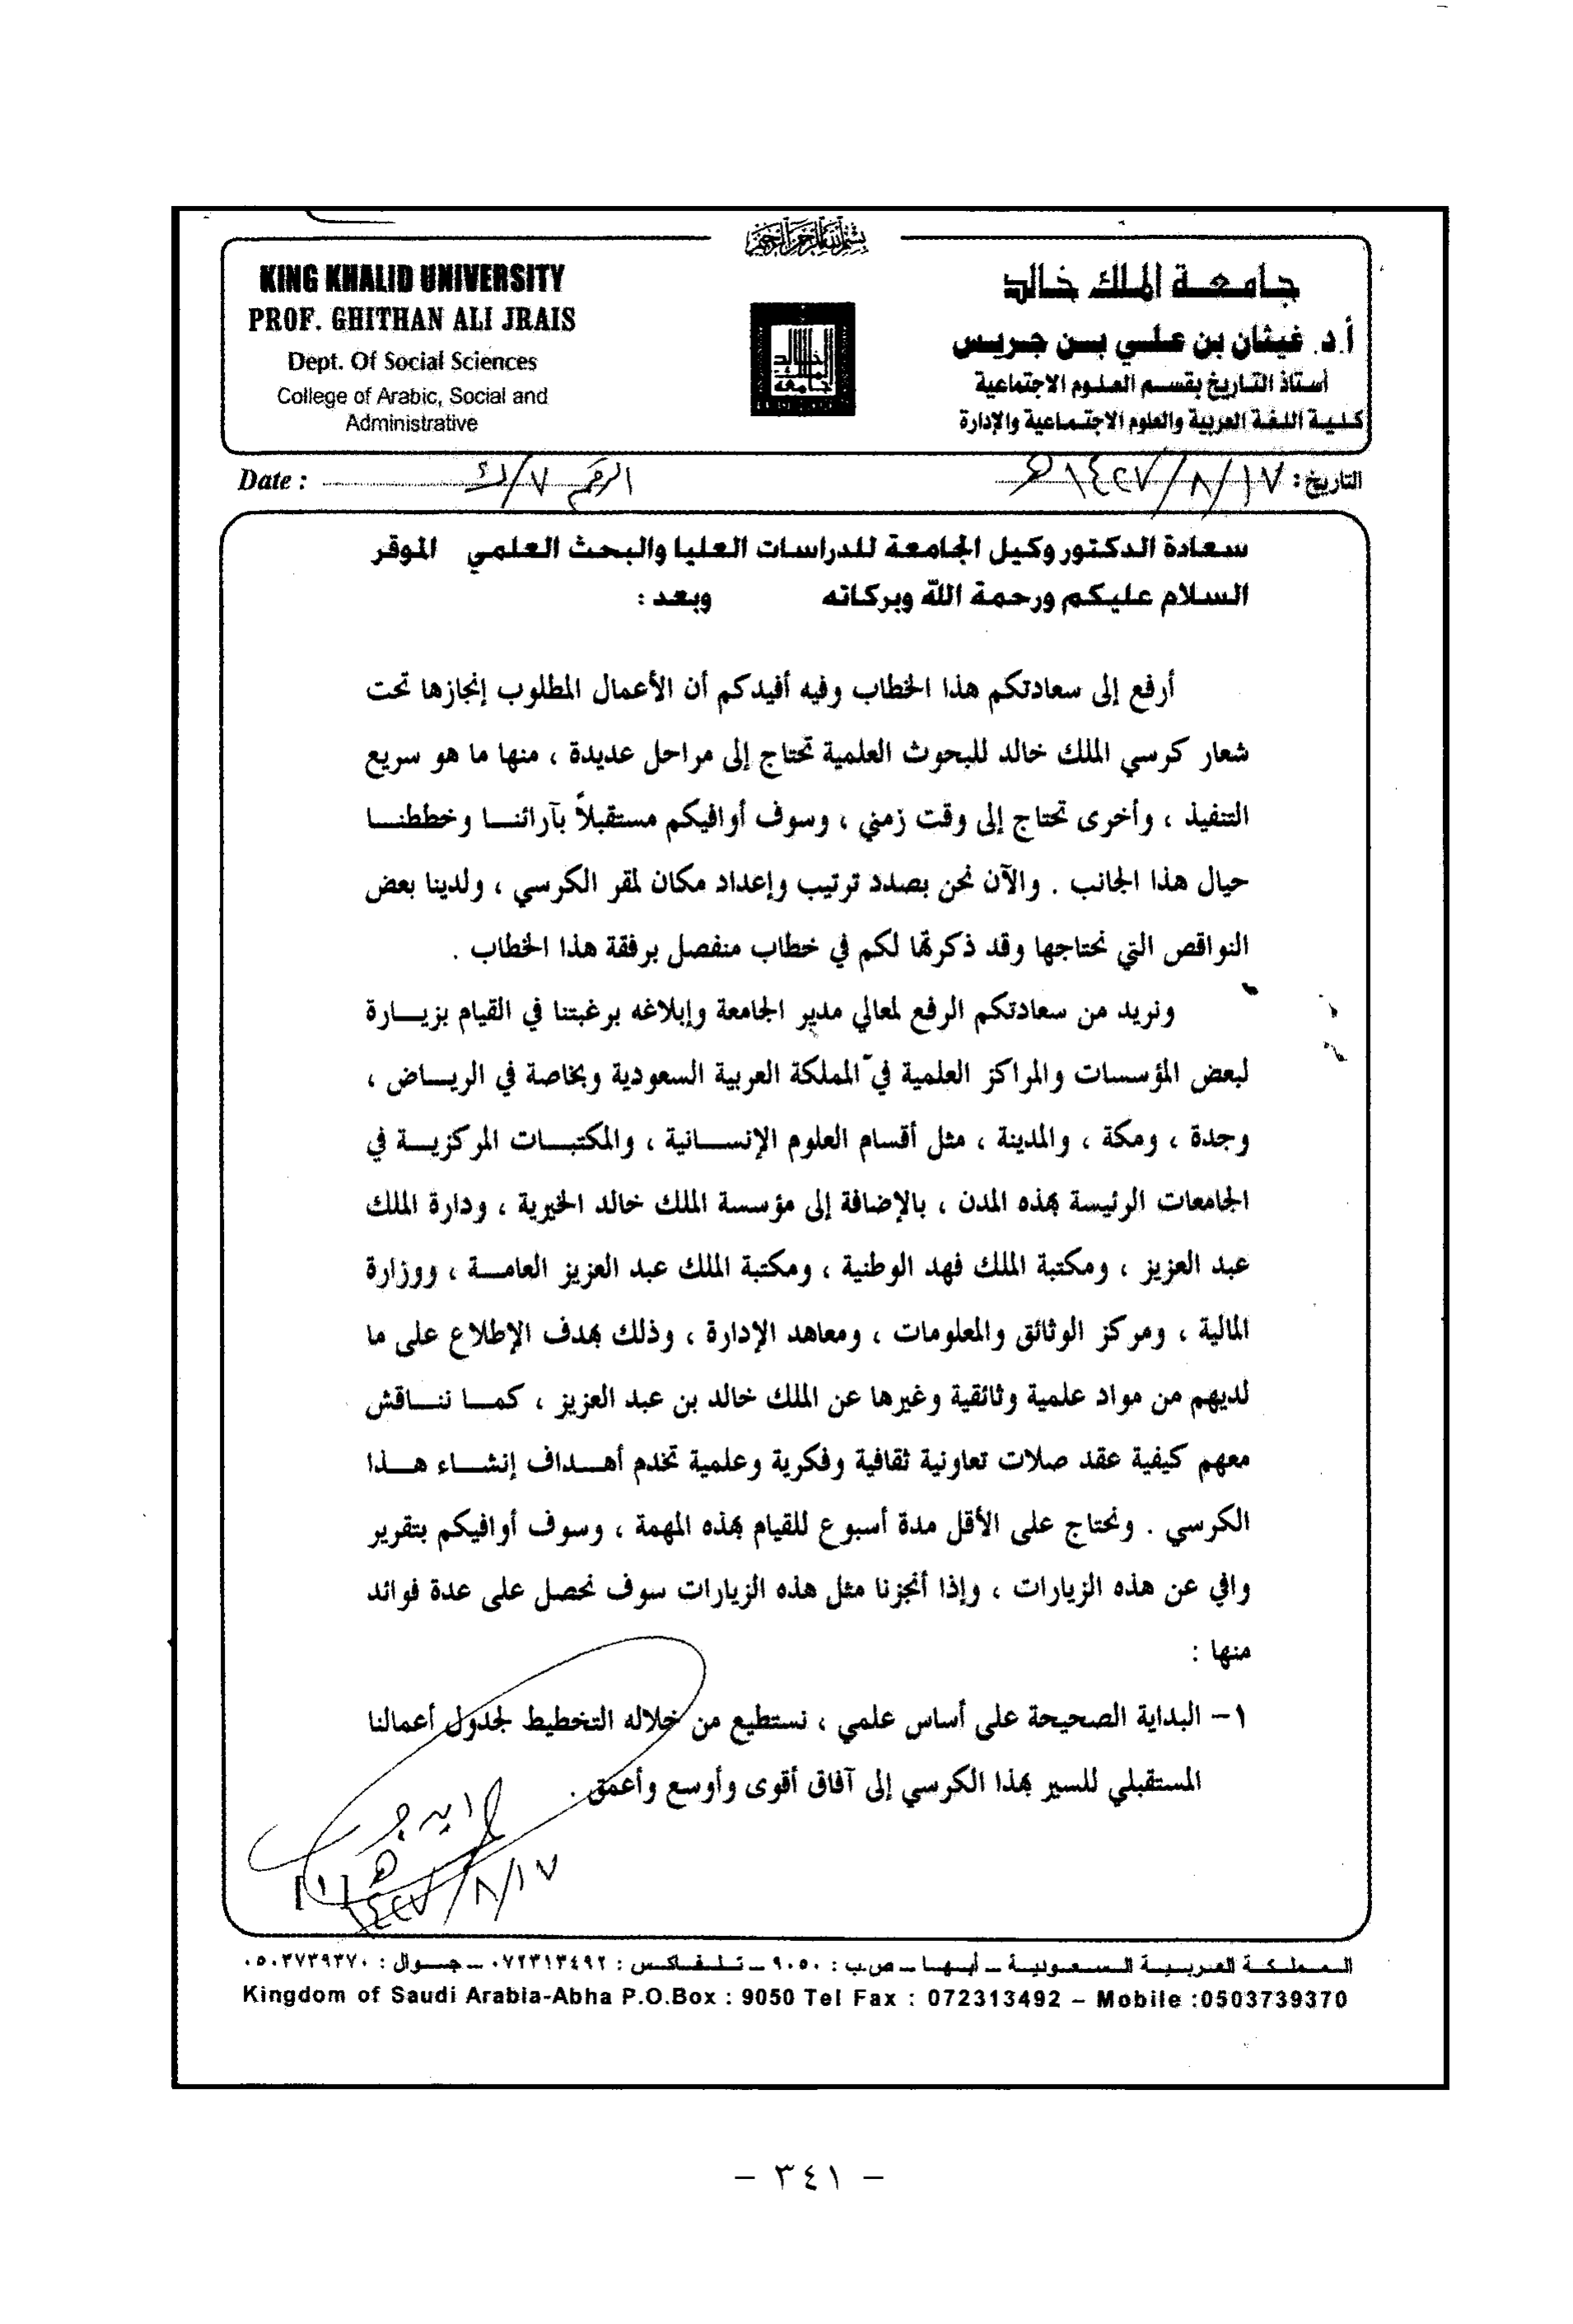 بسم الله الرحمن الرحيم
جامعة الملك خالد
أ.د. غيثان بن علي بن جريس
أستاذ التاريخ بقسم العلوم الاجتماعية
كلية اللغة العربية والعلوم الاجتماعية والإدارة
KING KHALID UNIVERSITY
PROF. GHITHAN ALI JRAIS
Dept. Of Social Sciences
College of Arabic, Social and
Administrative
التاريخ: ١٤٢٧/٨/١٧هـ
الرقم ٧/ك
Date :
سعادة الدكتور وكيل الجامعة للدراسات العليا والبحث العلمي الموقر
السلام عليكم ورحمة الله وبركاته وبعد :
أرفع إلى سعادتكم هذا الخطاب وفيه أفيدكم أن الأعمال المطلوب إنجازها تحت
شعار كرسي الملك خالد للبحوث العلمية تحتاج إلى مراحل عديدة ، منها ما هو سريع
التنفيذ ، وأخرى تحتاج إلى وقت زمني ، وسوف أوافيكم مستقبلاً بآرائنا وخططنا
حيال هذا الجانب . والآن نحن بصدد ترتيب وإعداد مكان لمقر الكرسي ، ولدينا بعض
النواقص التي نحتاجها وقد ذكرتها لكم في خطاب منفصل برفقة هذا الخطاب .
ونريد من سعادتكم الرفع لمعالي مدير الجامعة وإبلاغه برغبتنا في القيام بزيارة
لبعض المؤسسات والمراكز العلمية في المملكة العربية السعودية وبخاصة في الرياض ،
وجدة ، ومكة ، والمدينة ، مثل أقسام العلوم الإنسانية ، والمكتبات المركزية في
الجامعات الرئيسة بهذه المدن ، بالإضافة إلى مؤسسة الملك خالد الخيرية ، ودارة الملك
عبد العزيز ، ومكتبة الملك فهد الوطنية ، ومكتبة الملك عبد العزيز العامة ، ووزارة
المالية ، ومركز الوثائق والمعلومات ، ومعاهد الإدارة ، وذلك بهدف الإطلاع على ما
لديهم من مواد علمية وثائقية وغيرها عن الملك خالد بن عبد العزيز ، كما نناقش
معهم كيفية عقد صلات تعاونية ثقافية وفكرية وعلمية تخدم أهداف إنشاء هذا
الكرسي . ونحتاج على الأقل مدة أسبوع للقيام بهذه المهمة ، وسوف أوافيكم بتقرير
وافي عن هذه الزيارات ، وإذا أنجزنا مثل هذه الزيارات سوف نحصل على عدة فوائد
منها :
١- البداية الصحيحة على أساس علمي ، نستطيع من خلاله التخطيط لجدول أعمالنا
المستقبلي للسير بهذا الكرسي إلى آفاق أقوى وأوسع وأعمق .
١٤٢٧/٨/١٧هـ
[١]
المملكة العربية السعودية – أبها – ص.ب : ٩٠٥٠ – تلفاكس : ٠٧٢٣١٣٤٩٢ – جوال : ٠٥٠٣٧٣٩٣٧٠
Kingdom of Saudi Arabia-Abha P.O.Box : 9050 Tel Fax : 072313492 – Mobile :0503739370
– ٣٤١ –